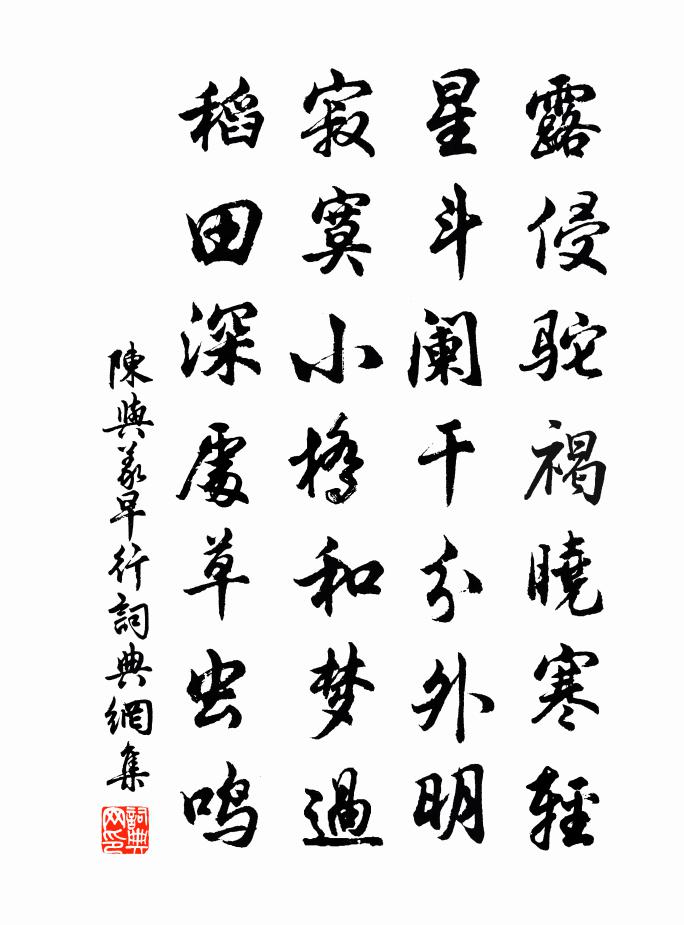 露侵驼褐曉寒輕
星斗阑干分外明
寂寞小橋和梦過
稻田深處草虫鳴
陳與義早行詞典網集
詞典
网印